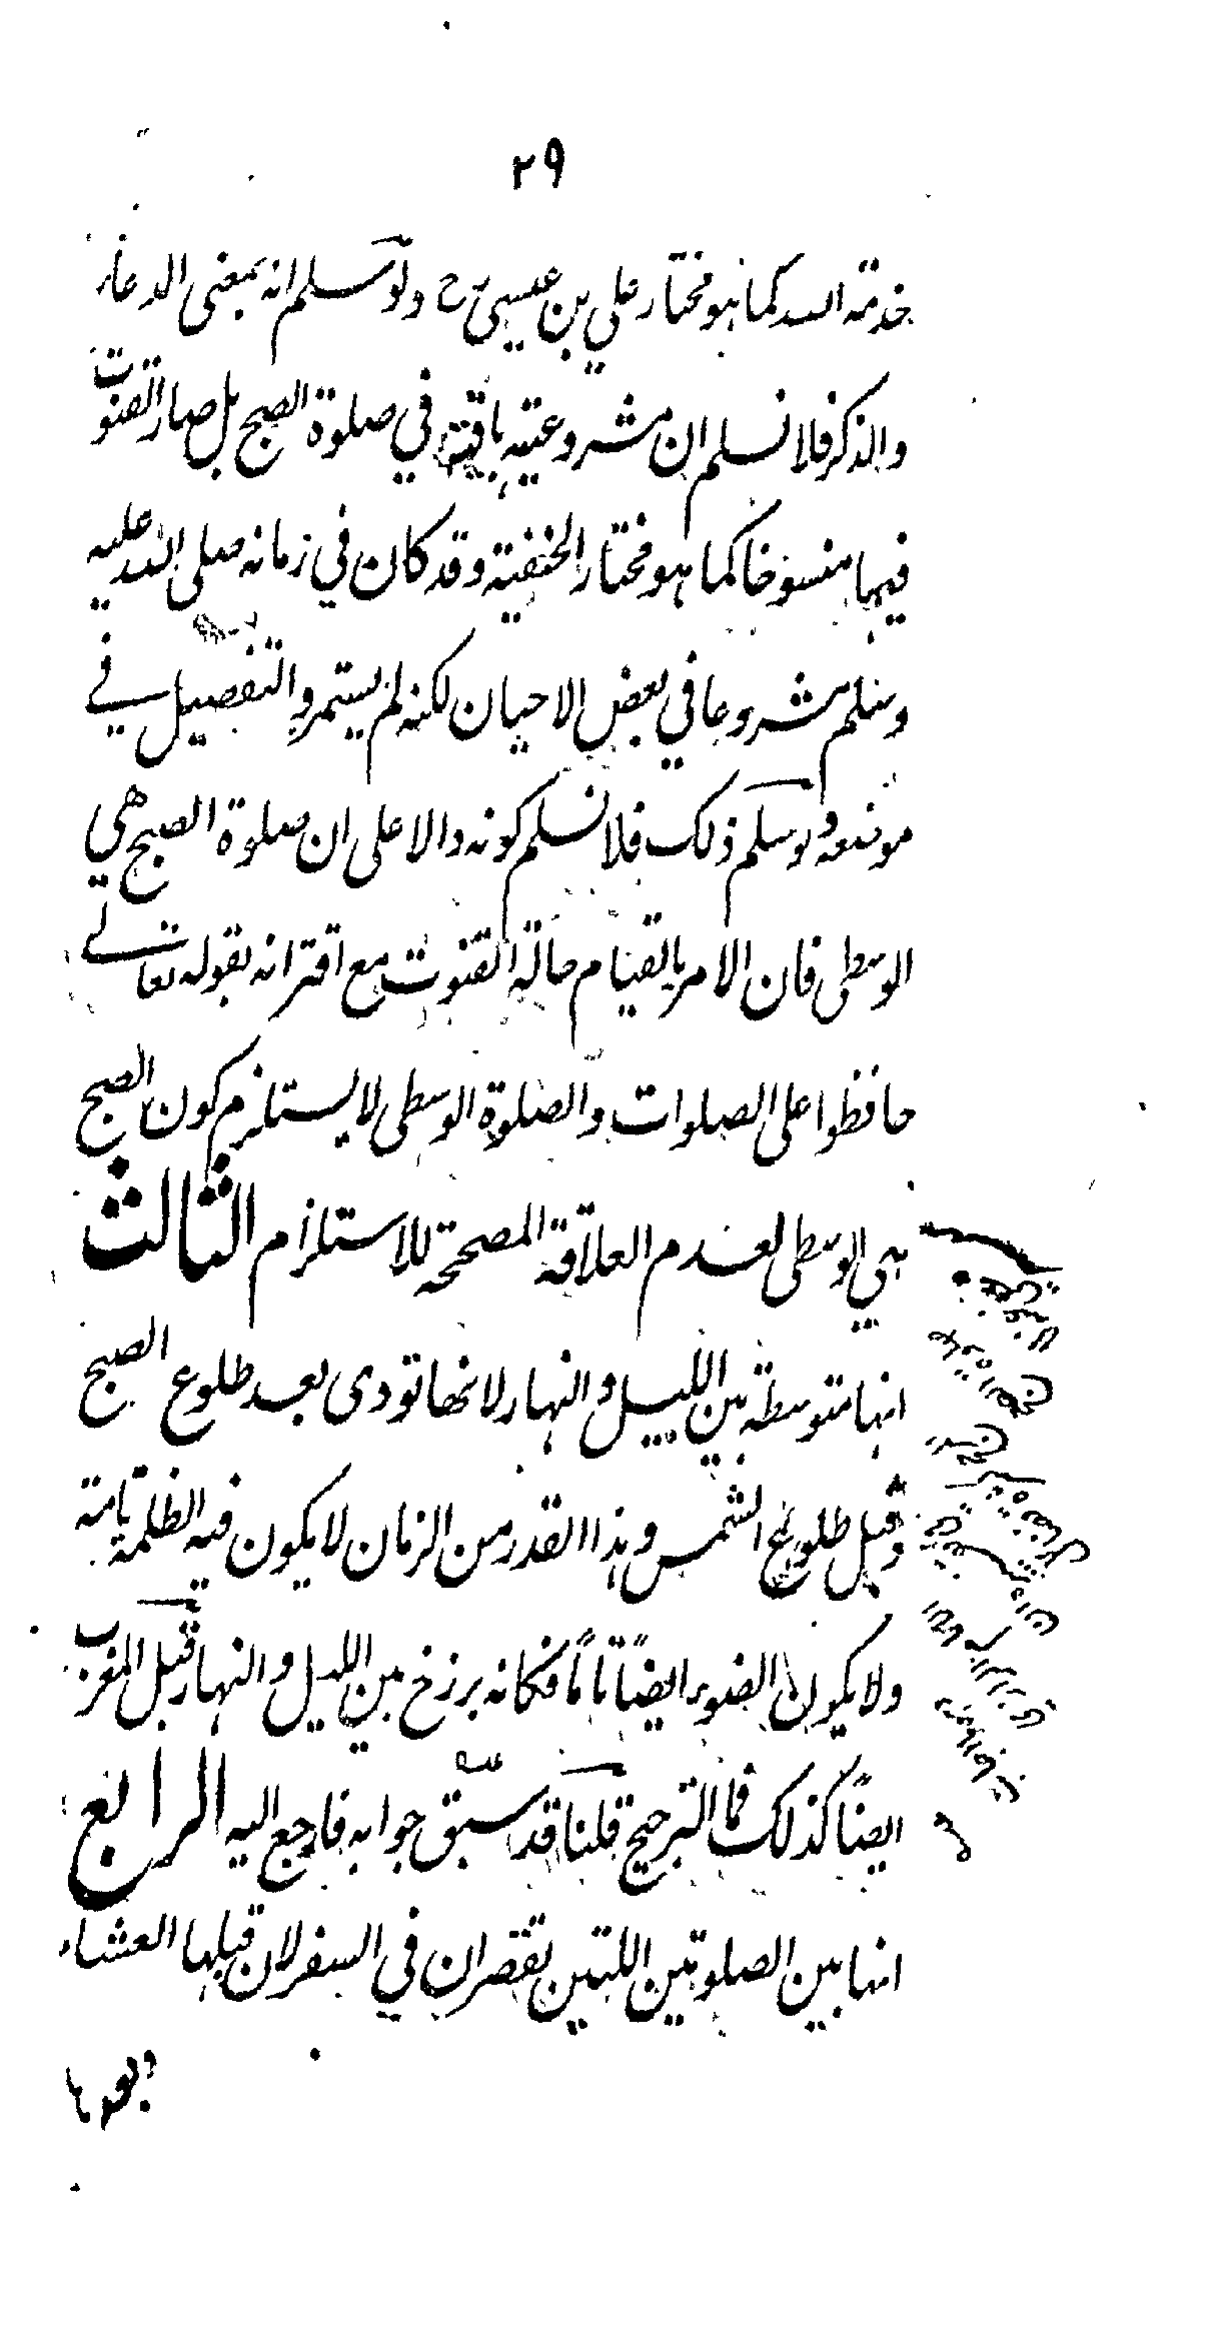 ٢٩
خدمة الله كما هو مختار علي بن عيسى رح ولو سلم انه بمعنى الدعاء
والذكر فلا نسلم ان مشروعيته باقية في صلوة الصبح بل صار القنوت
فيها منسوخا كما هو مختار الحنفية وقد كان في زمانه صلى الله عليه
وسلم مشروعا في بعض الاحيان لكنه لم يستمر والتفصيل في
موضعه ولو سلم ذلك فلا نسلم كونه دالا على ان صلوة الصبح هي
الوسطى فان الامر بالقيام حالة القنوت مع اقترانه بقوله تعالى
حافظوا على الصلوات والصلوة الوسطى لا يستلزم كون الصبح
هي الوسطى لعدم العلاقة المصححة للاستلزام الثالث
انها متوسطة بين الليل والنهار لانها تودى بعد طلوع الصبح
وقبل طلوع الشمس وهذا القدر من الزمان لا يكون فيه الظلمة تامة
ولا يكون الضوء ايضاً تاماً فكانه برزخ بين الليل والنهار قبل المغرب
ايضاً كذلك فما الترجيح قلنا قد سبق جوابه فارجع اليه الرابع
انها بين الصلوتين اللتين تقصران في السفر لان قبلها العشاء
وبعدها